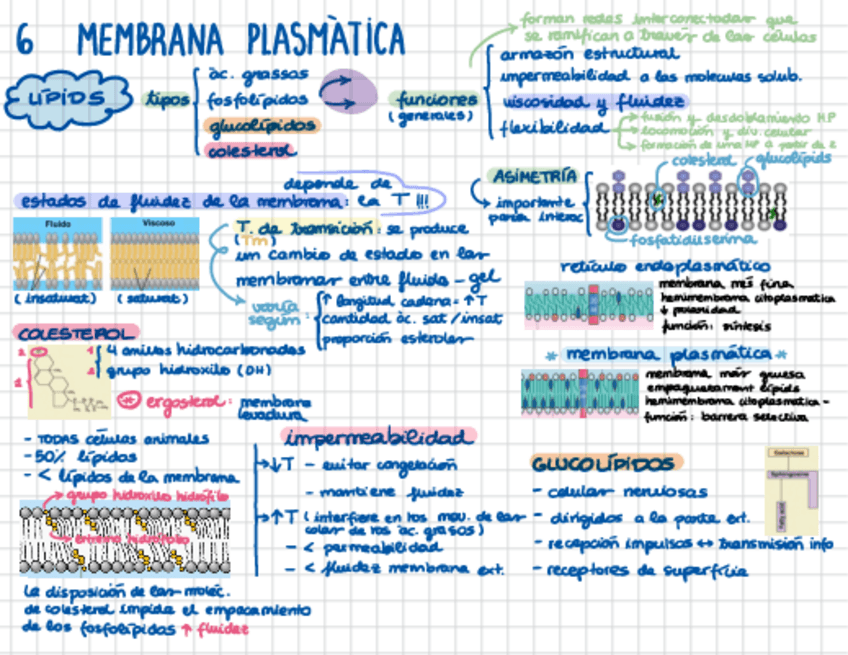 6 MEMBRANA PLASMÀTICA
LÍPIDS
tipos
àc. grassos
fosfolípidos
glucolípidos
colesterol
funciones
(generales)
forman redes interconectadas que
se ramifican a través de las células
armazón estructural
impermeabilidad a las moleculas solub.
viscosidad y fluidez
flexibilidad
fusión y desdoblamiento MP
locomoción y div. celular
formación de una MP a partir de 2
estados de fluidez de la membrana: depende de
la T !!!
Fluido
Viscoso
(insaturat)
(saturat)
T. de transición: se produce
(Tm)
un cambio de estado en las
membranas entre fluido - gel
varía
según:
↑ longitud cadena = ↑T
cantidad àc. sat / insat
proporción esteroles
ASIMETRÍA
importante
para interac
colesterol
glucolípids
fosfatidilserina
retículo endoplasmático
membrana més fina
hemimembrana citoplasmatica
función: síntesis
* membrana plasmática *
membrana más gruesa
empaquetament lípids
hemimembrana citoplasmatica -
función: barrera selectiva
COLESTEROL
4 anillos hidrocarbonados
grupo hidroxilo (OH)
ergosterol: membrana
levadura
- TODAS células animales
- 50% lípidos
- < lípidos de la membrana
grupo hidroxilo hidrófilo
extremo hidrófobo
la disposición de las moléc.
de colesterol impida el empacamiento
de los fosfolípidos ↑ fluidez
impermeabilidad
→ ↓T - evitar congelación
- mantiene fluidez
→ ↑T (interfiere en los mov. de las
colas de los àc. grasos)
- < permeabilidad
- < fluidez membrana ext.
GLUCOLÍPIDOS
- celular nerviosas
- dirigidos a la parte ext.
- recepción impulsos ↔ transmisión info
- receptores de superfície
Galactose
Sphingosine
Fatty acid